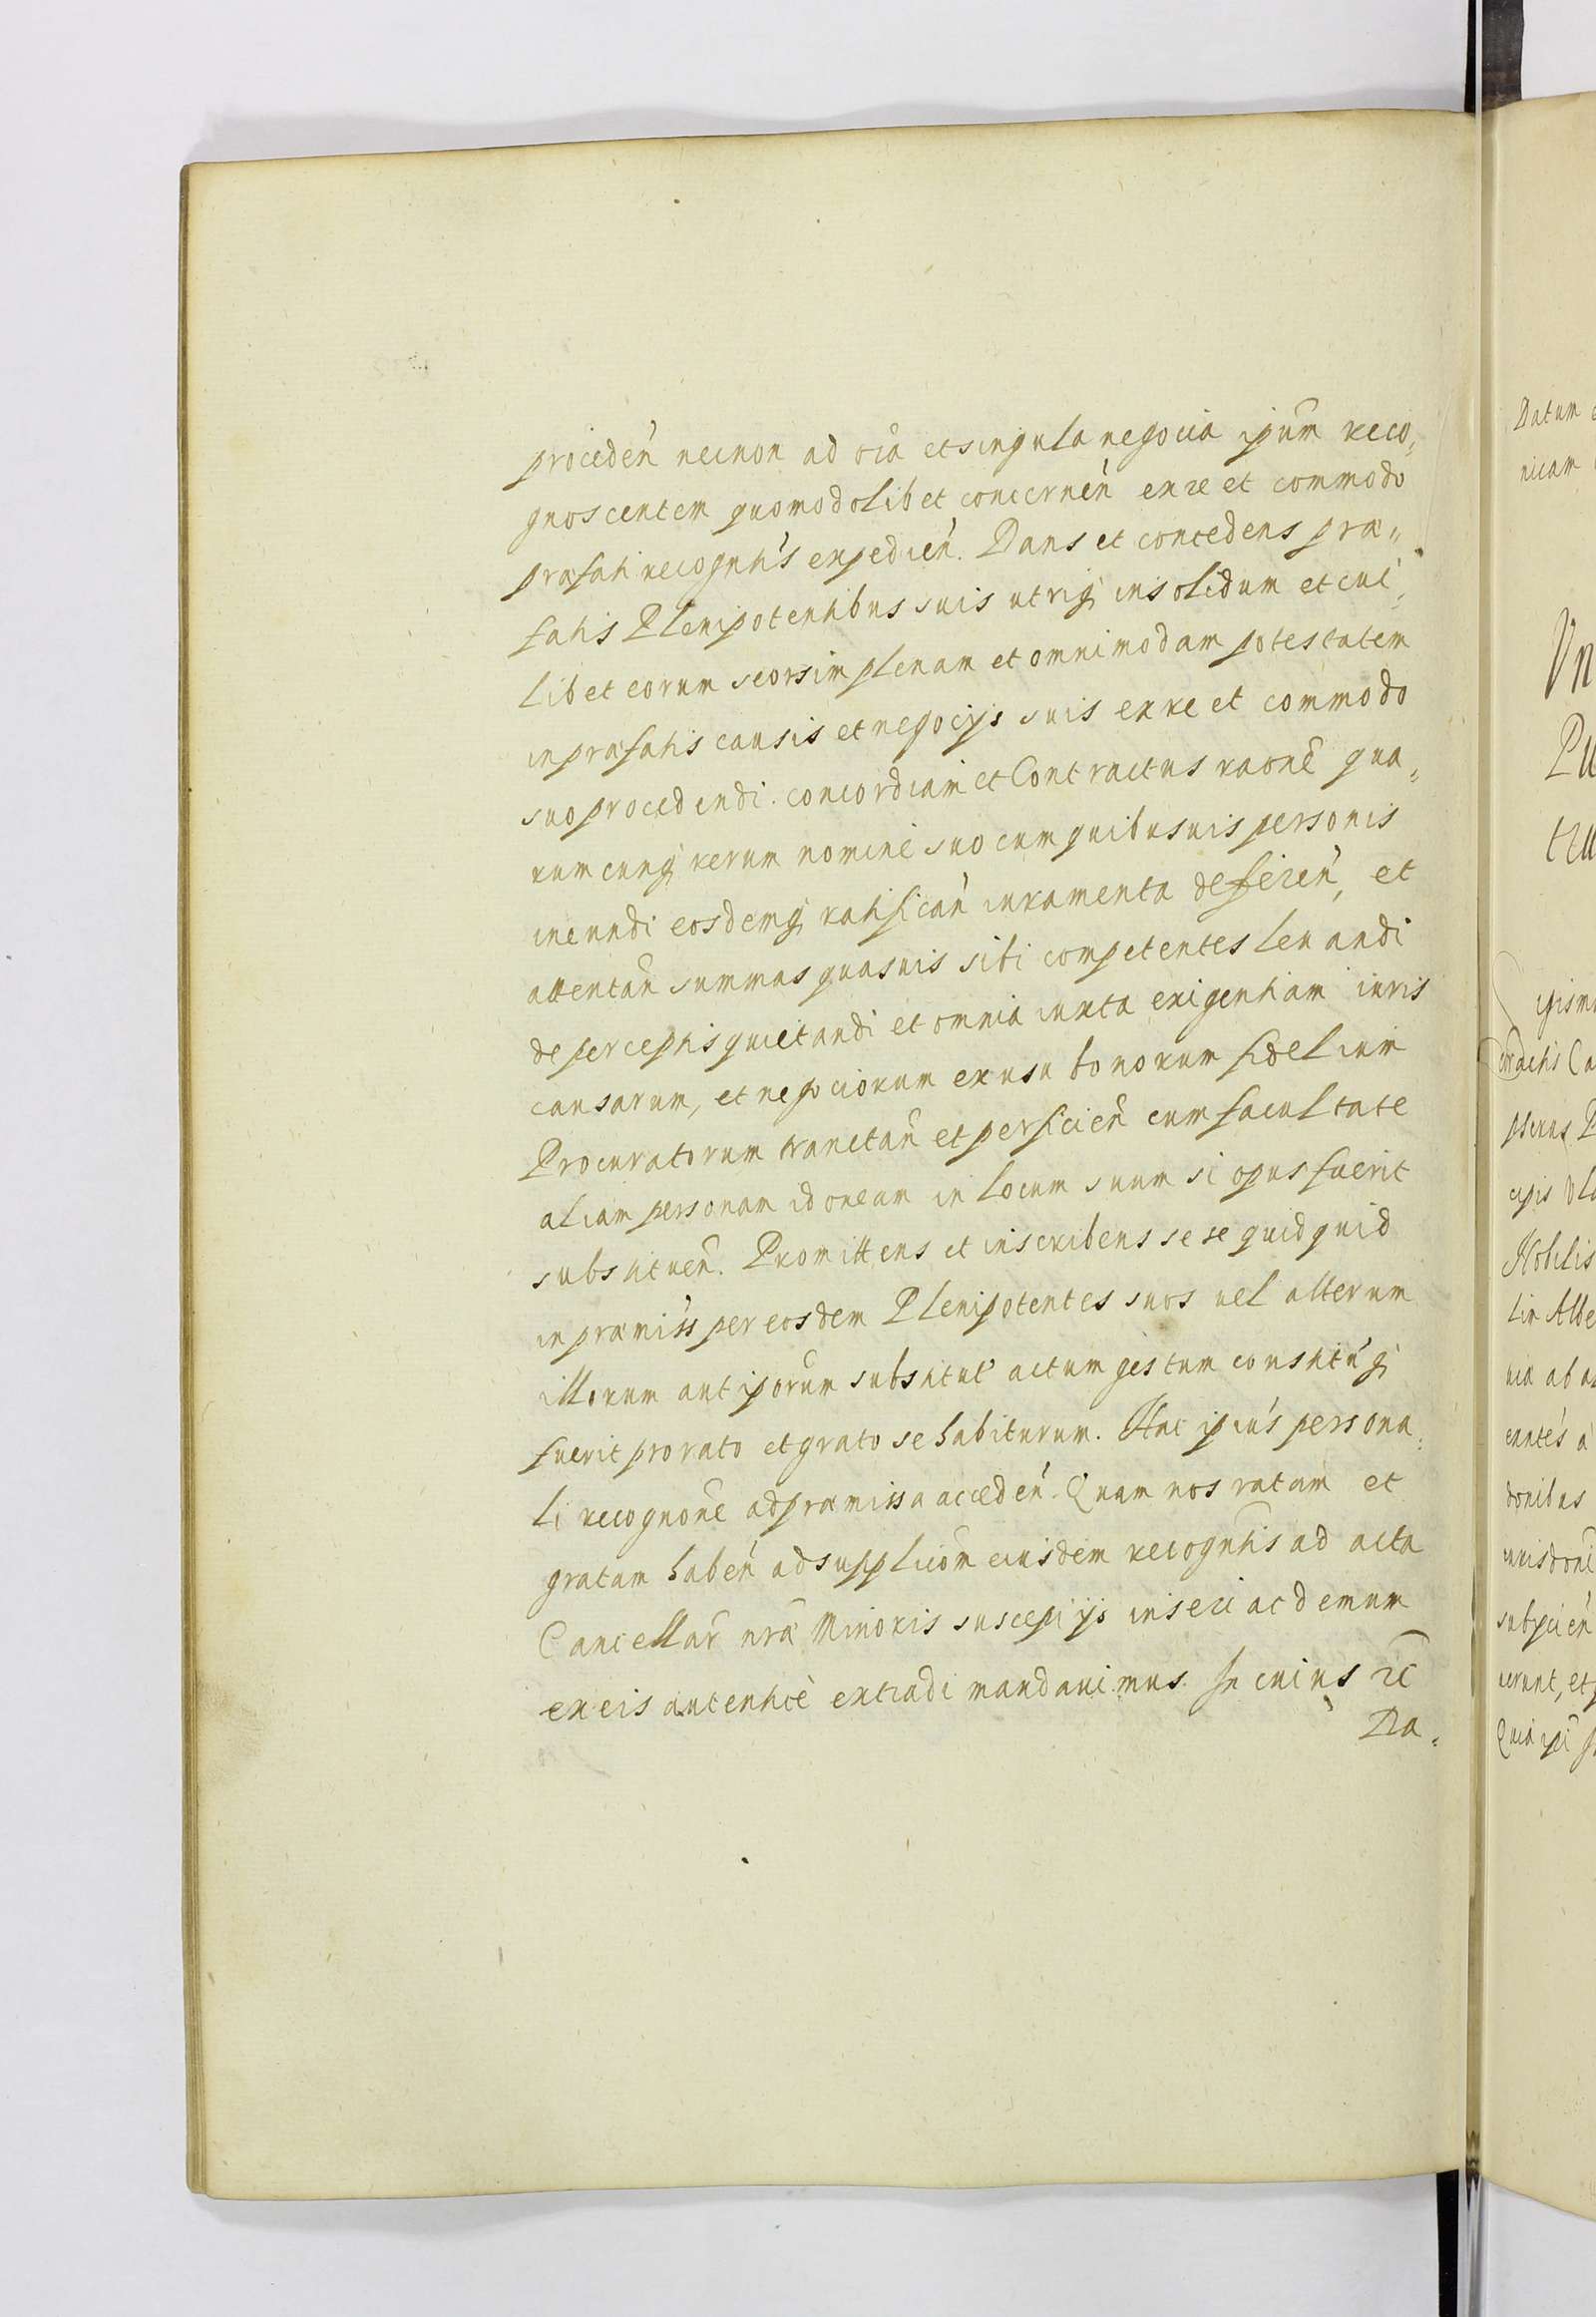 proceden̄ necnon ad oīa et singula negocia ipsum reco„
gnoscentem quomodolibet concernen̄ ex re et commodo
præfati recognn̄tis expedien̄. Dans et concedens præ„
fatis Plenipotentibus suis utriq; insolidum et cui„
libet eorum seorsim plenam et omnimodam potestatem
in præfatis causis et negocijs suis ex re et commodo
suo procedendi. concordiam et Contractus raōne qua„
rumcunq; rerum nomine suo cum quibusuis personis
ineundi eosdemq; ratifican̄ iuramenta deferen̄, et
attentan̄ summas quasuis sibi competentes leuandi
de perceptis quietandi et omnia iuxta exigentiam iuris
causarum, et negociorum ex usu bonorum fidelium
Procuratorum tractan̄ et perficien̄ cum facultate
aliam personam idoneam in locum suum si opus fuerit
substituen̄. Promittens et inscribens sese quidquid
in præmiss̄ per eosdem Plenipotentes suos uel alterum
illorum aut ip̄orum substitut̄ actum gestum constitūq;
fuerit pro rato et grato se habiturum. Hac ip̄ius persona„
li recognōne ad præmissa acceden̄. Quam nos ratam et
gratam haben̄ ad supplicōm eiusdem recognn̄tis ad acta
Cancellar̄ nr̄æ Minoris suscepi ijs inseri ac demum
ex eis autenticè extradi mandauimus. In cuius rē
Da„
Datum
nicam
Vn
Pu
cipis
Nobilis
nia ab
donibus
subijcien̄